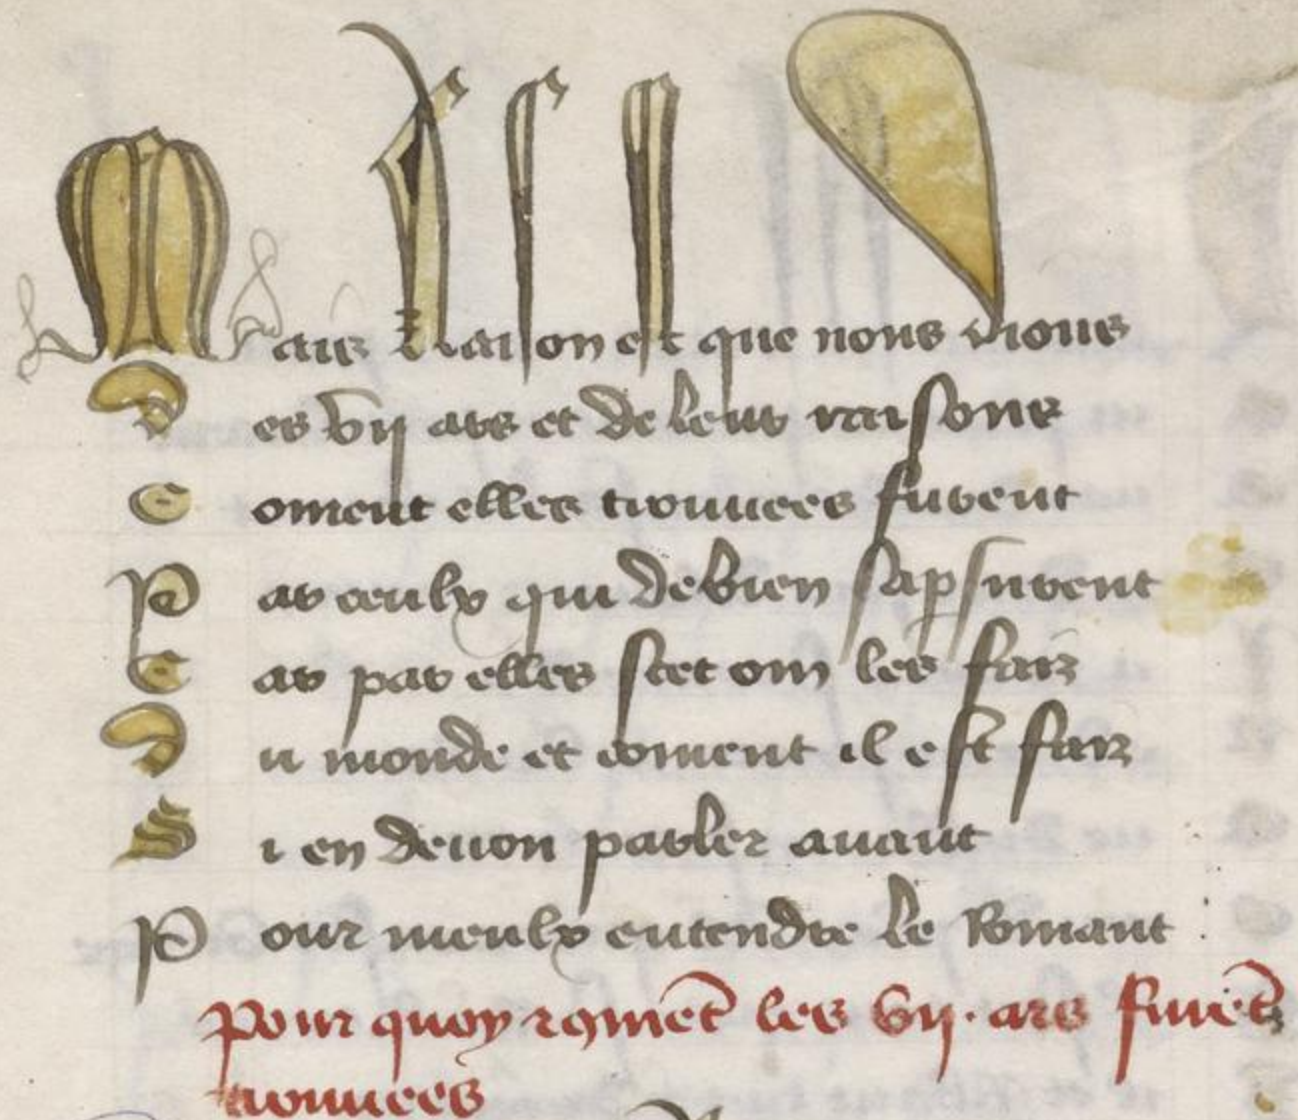 Mais Raison est que nous dions
Des vij ars et de leur raisons
Coment elles trouuees furent
Par ceulx qui de bien saꝑsurent
Car par elles scet om les faiz
Du monde et coment il est faiz
Si en deuon parler auant
Pour meulx entendre le Romant :
pour quoy ⁊ 9mēt les vij. ars furēt
trouuees